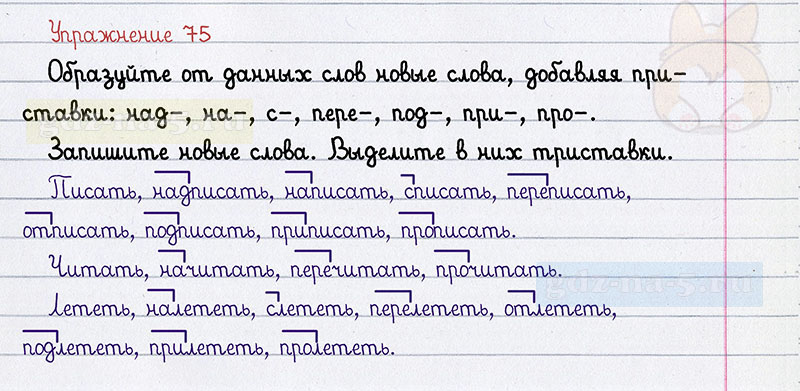 Упражнение 75
Образуйте от данных слов новые слова, добавляя при-
ставки: над-, на-, с-, пере-, под-, при-, про-.
Запишите новые слова. Выделите в них триставки.
Писать, надписать, написать, списать, переписать,
отписать, подписать, приписать, прописать.
Читать, начитать, перечитать, прочитать.
gdz-na-5.ru
Лететь, налететь, слететь, перелететь, отлететь,
подлететь, прилететь, пролететь.